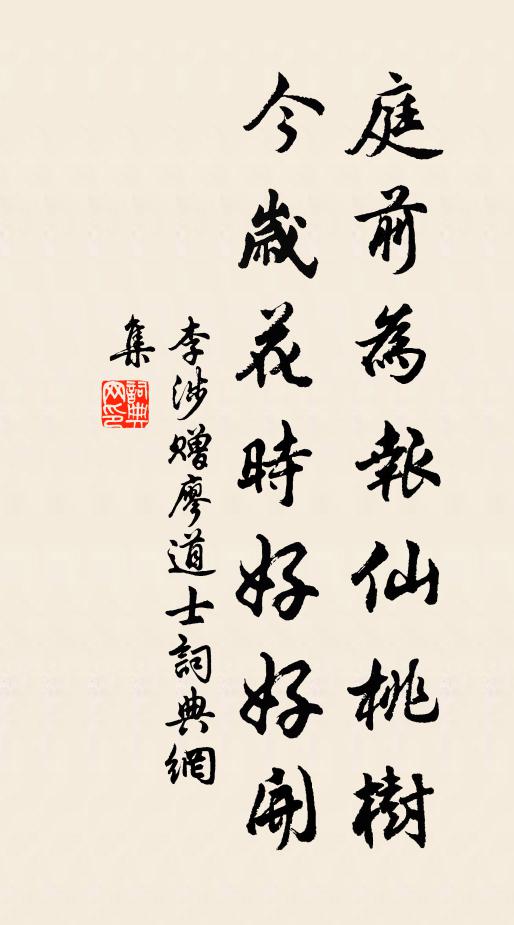 庭前為報仙桃樹
今歲花時好好開
李涉贈廖道士詞典網
集
詞典
网印